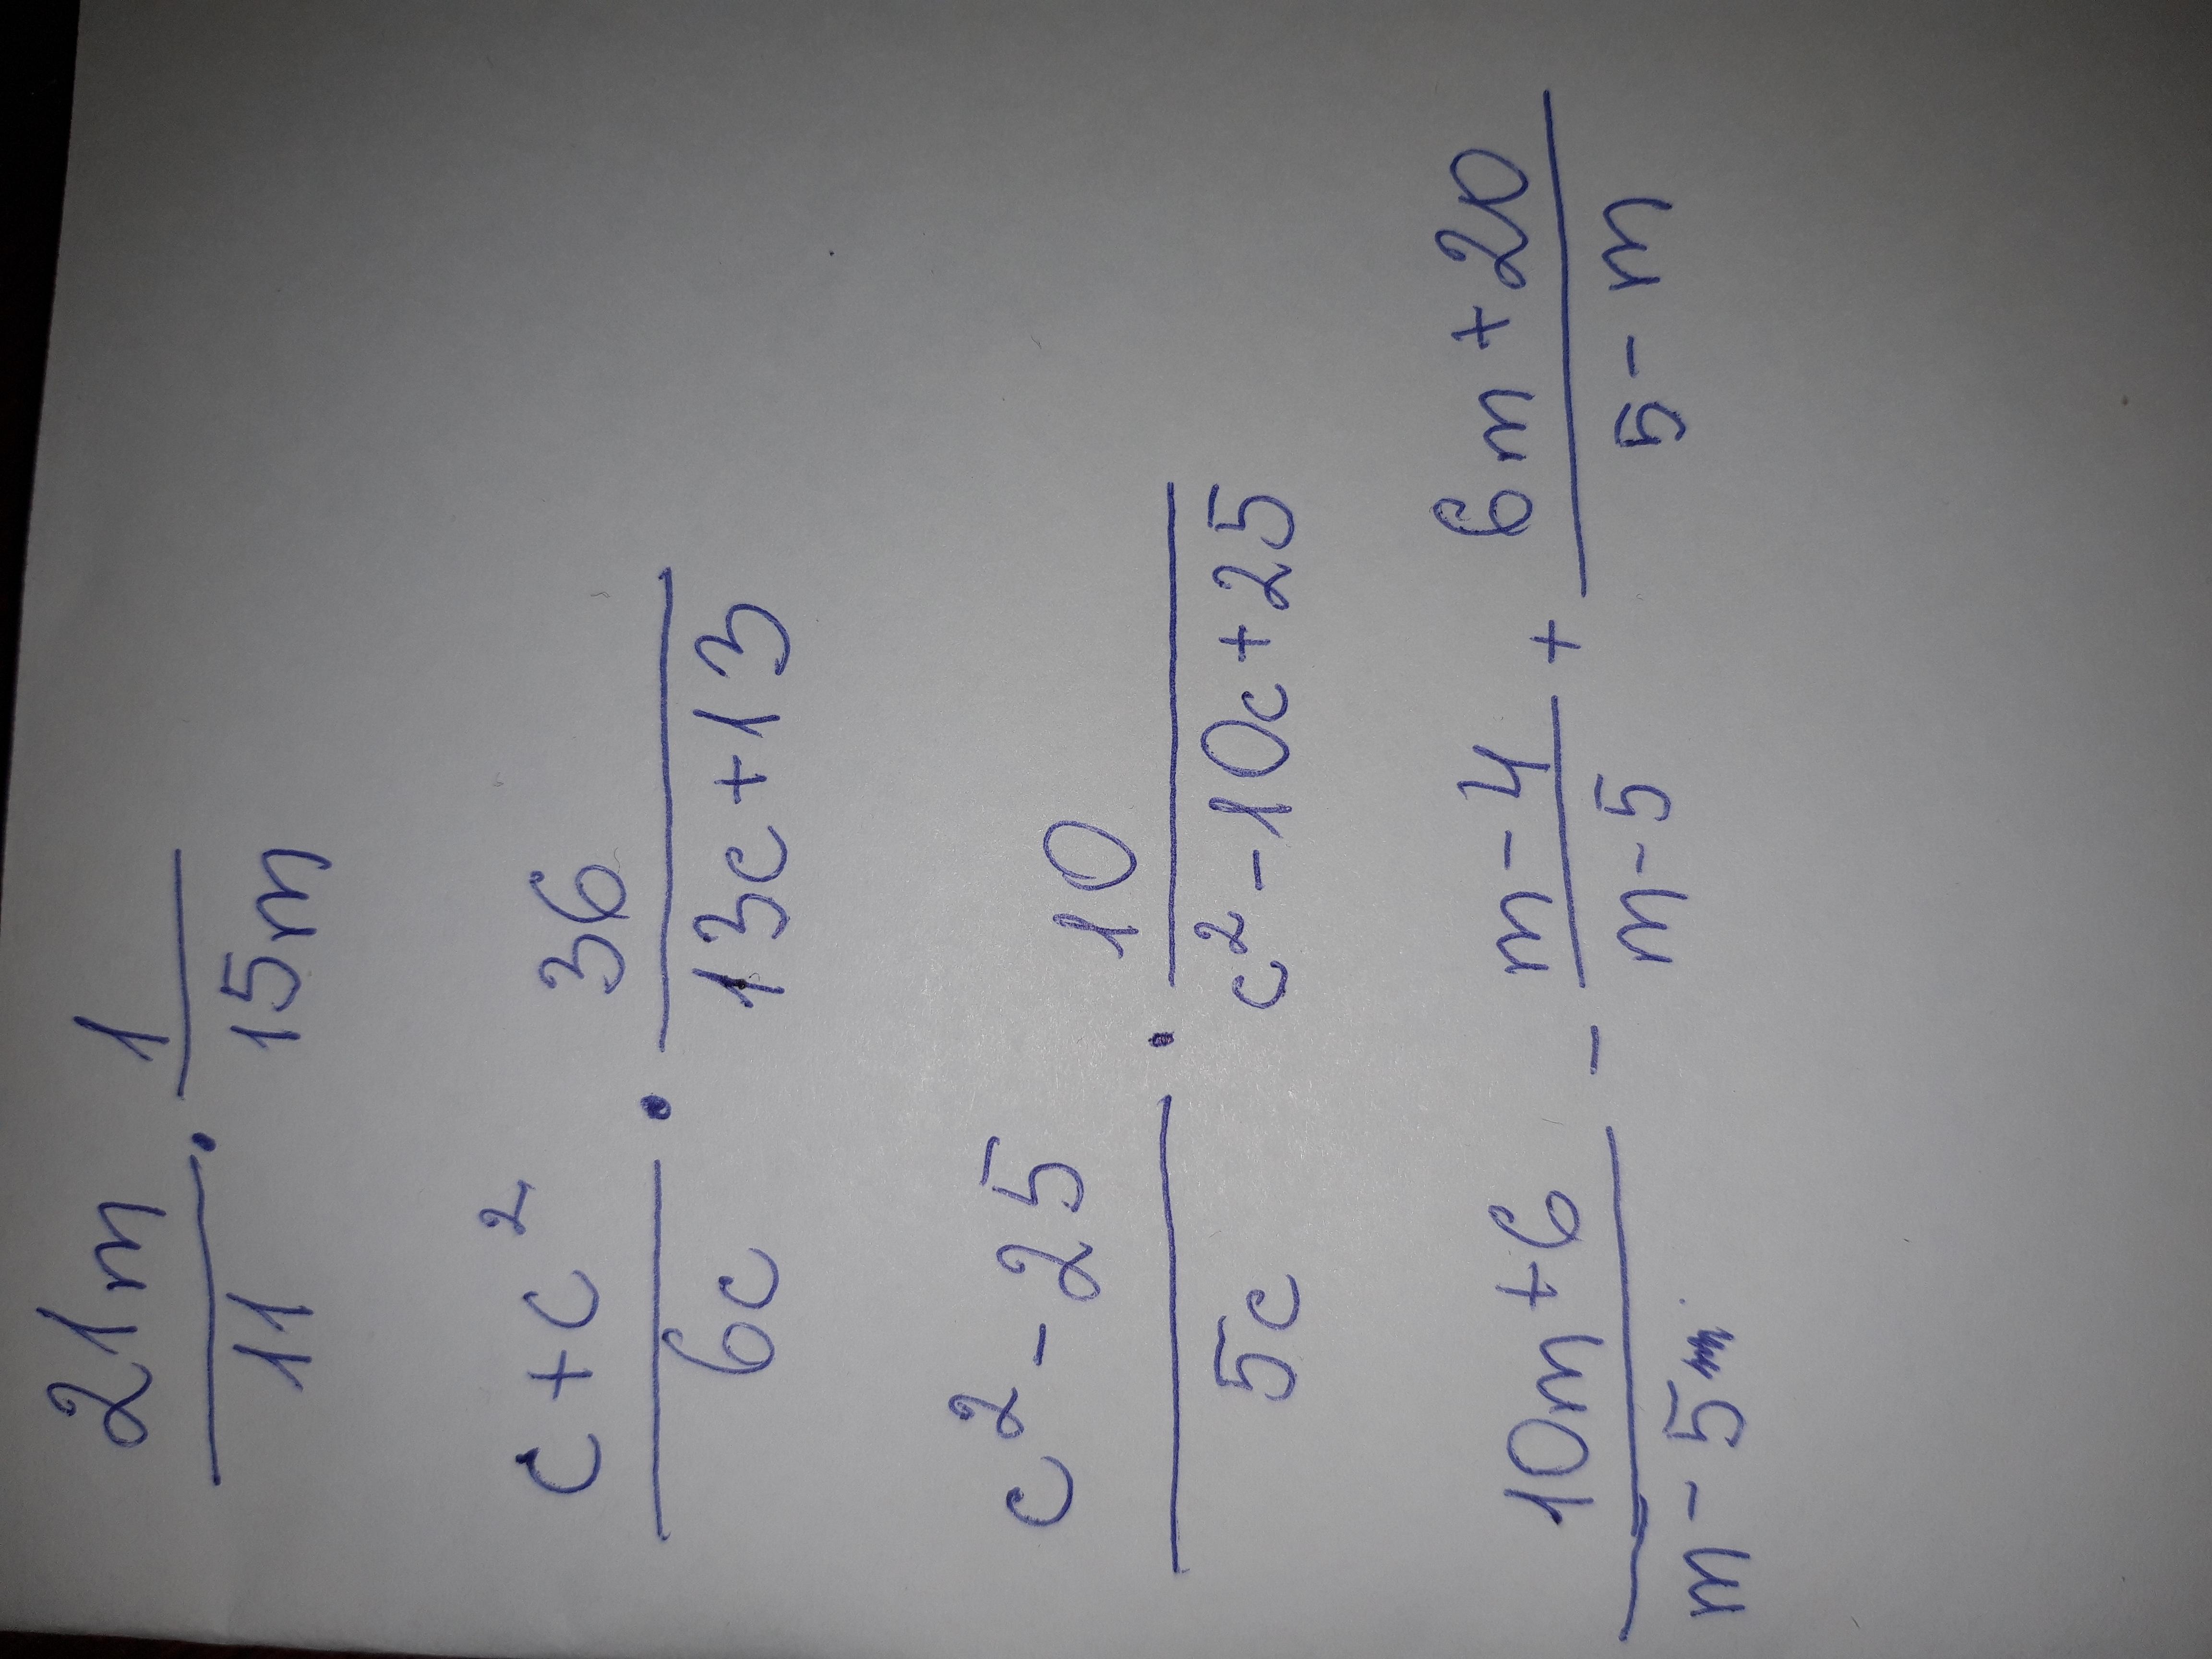 21m/11 · 1/15m
c+c²/6c · 36/13c+13
c²-25/5c · 10/c²-10c+25
10m+6/m-5 - m-4/m-5 + 6m+20/5-m